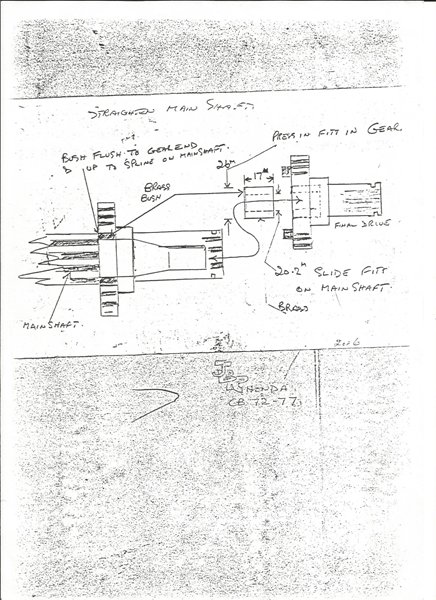 STRAIGHTEN MAIN SHAFT.
BUSH FLUSH TO GEAR END
& UP TO SPLINE ON MAINSHAFT.
PRESS IN FITT IN GEAR.
BRASS
BUSH
17 M
FINAL DRIVE
20.2 M SLIDE FITT
ON MAINSHAFT.
BRASS
MAINSHAFT.
HONDA
CB 72-77.